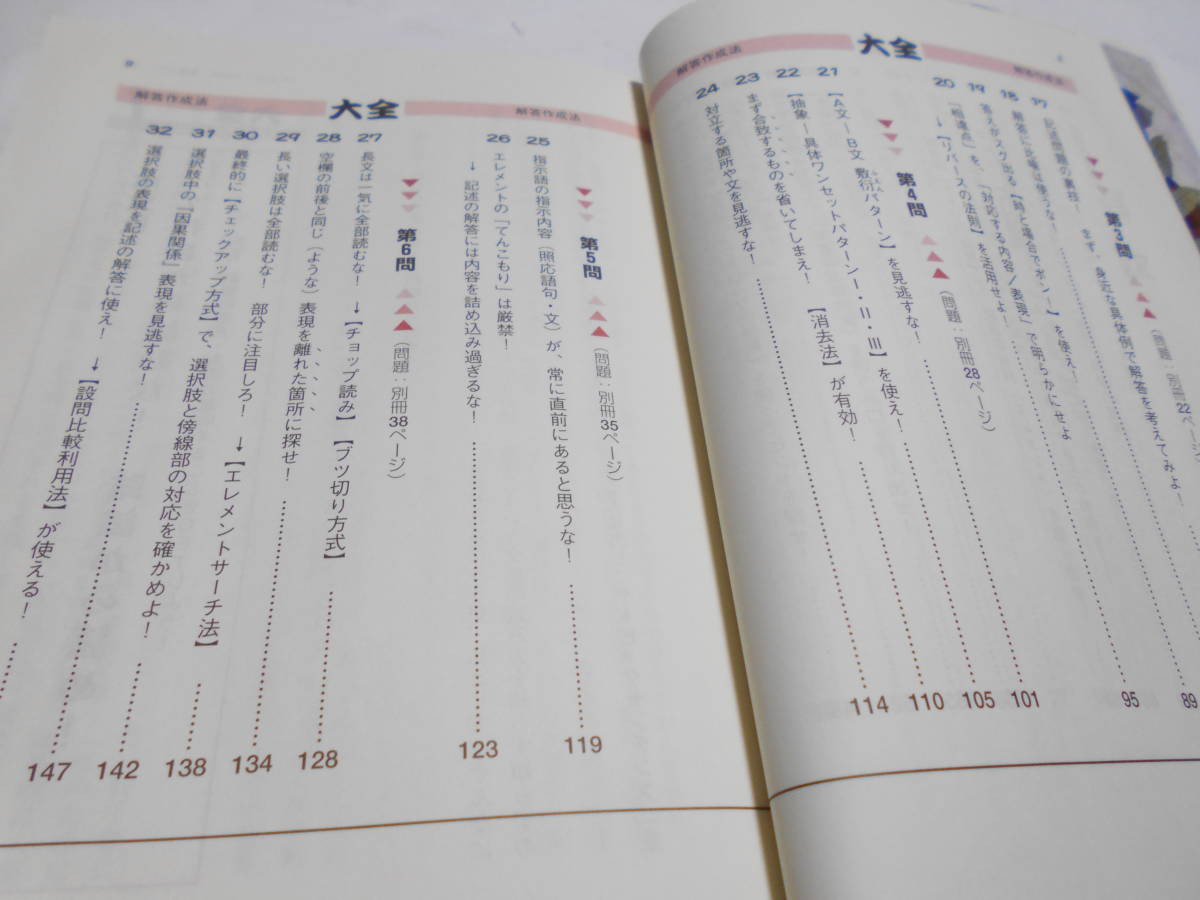 解答作成法
大全
解答作成法
第3問
(問題:別冊22ページ)
17
記述問題の裏技!
まず、身近な具体例で解答を考えてみよ!
89
18
解答に比喩は使うな!
95
19
答えがスグ出る【時と場合でポン!】を使え!
20
「相違点」を、「対応する内容/表現」で明らかにせよ
→【リバースの法則】を活用せよ!
101
第4問
(問題:別冊28ページ)
21
【A文=B文 敷衍パターン】を見逃すな!
105
22
【抽象=具体ワンセットパターンⅠ・Ⅱ・Ⅲ】を使え!
110
23
まず合致するものを省いてしまえ! 【消去法】が有効!
114
24
対立する箇所や文を見逃すな!
9
解答作成法
大全
解答作成法
第5問
(問題:別冊35ページ)
25
指示語の指示内容(照応語句・文)が、常に直前にあると思うな!
119
26
エレメントの「てんこもり」は厳禁!
→ 記述の解答には内容を詰め込み過ぎるな!
123
第6問
(問題:別冊38ページ)
27
長文は一気に全部読むな! →【チョップ読み】【ブツ切り方式】
128
28
空欄の前後と同じ(ような)表現を離れた箇所に探せ!
134
29
長い選択肢は全部読むな! 部分に注目しろ! →【エレメントサーチ法】
138
30
最終的に【チェックアップ方式】で、選択肢と傍線部の対応を確かめよ!
142
31
選択肢中の「因果関係」表現を見逃すな!
147
32
選択肢の表現を記述の解答に使え! →【設問比較利用法】が使える!